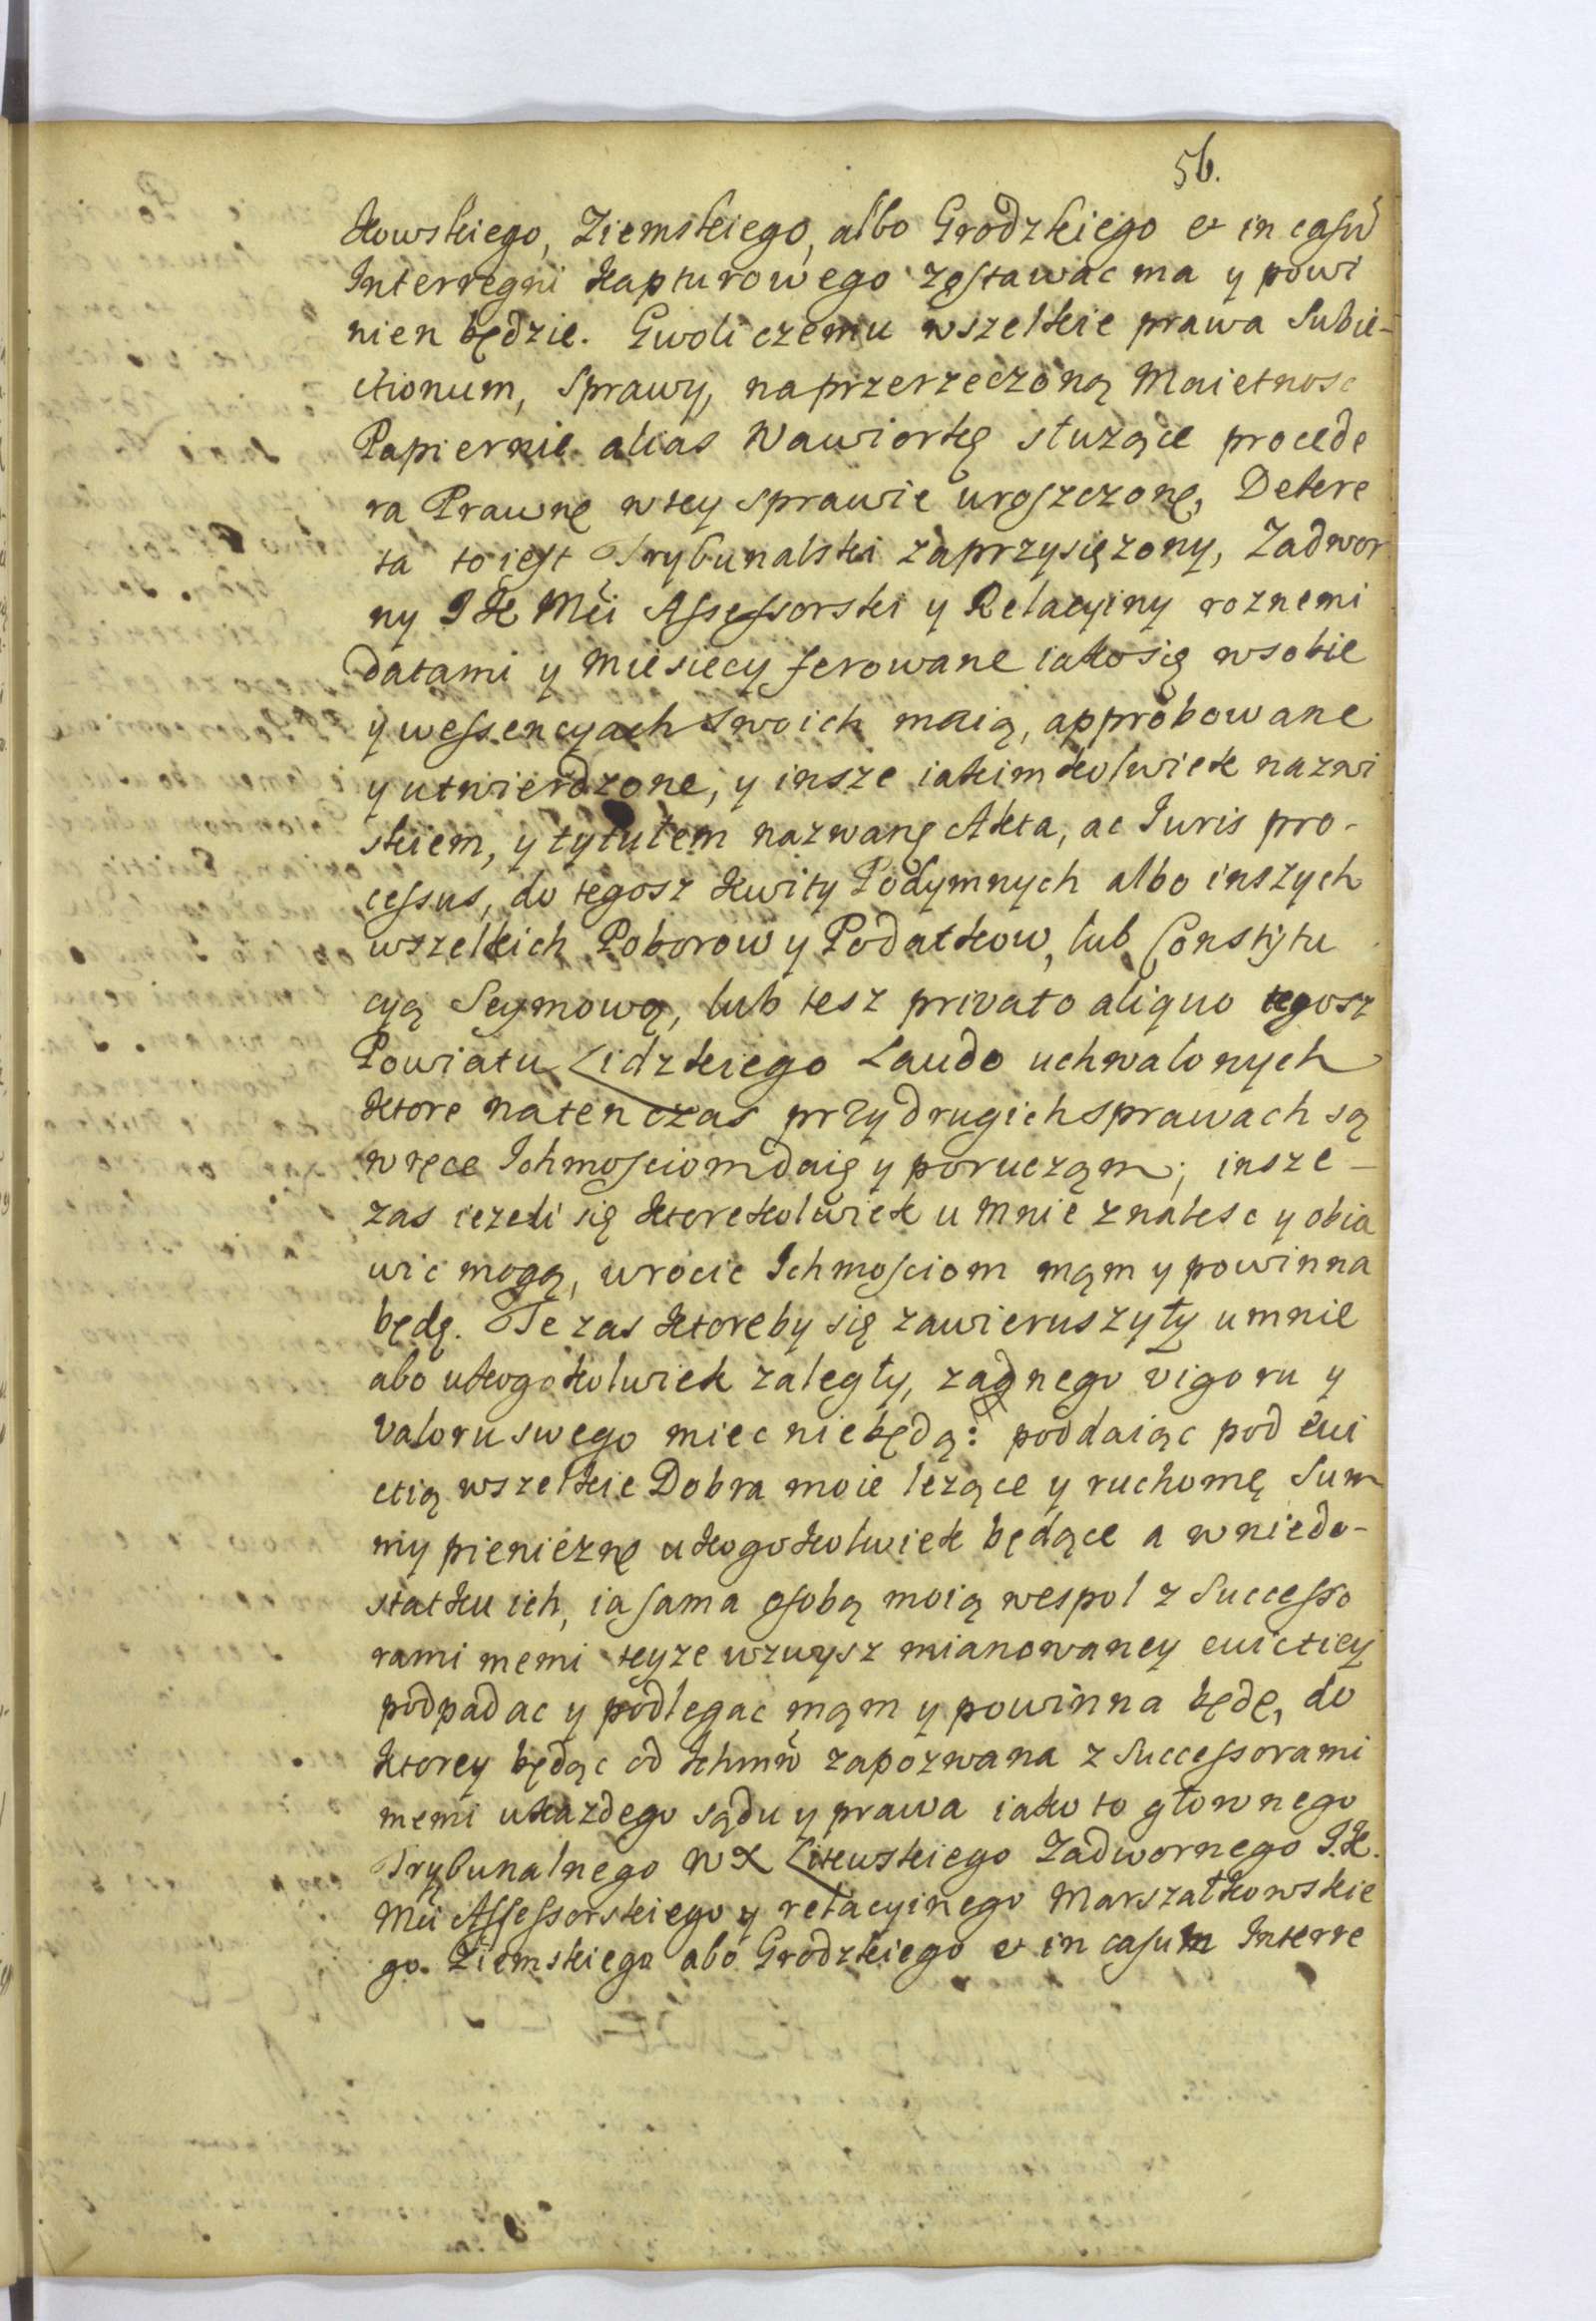 56.
kowskiego, Ziemskiego, albo Grodzkiego et in casu
Interregni kapturowego zostawac ma y powi
nien będzie. Gwoli czemu wszelkie prawa Subie-
ctionum, sprawy, na przerzeczoną Maietnosc
Papiernie alias Wawiorkę słuzące procede
ra Prawne w tey sprawie uroszczone, Dekre
ta to iest Trybunalski zaprzysięzony, Zadwor
ny JK Mci Assessorski y Relacyiny roznemi
datami y Miesiecy ferowane iako się w sobie
y w essencyach swoich maią, approbowane
y utwierdzone, y insze iakimkolwiek nazwi
skiem, y tytułem nazwane Akta, ac Iuris pro-
cessus, do tegosz kwity Podymnych albo inszych
wszelkich Poborow y Podatkow, lub Constytu
cyą Seymową, lub tesz privato aliquo tegosz
Powiatu Lidzkiego Laudo uchwalonych
ktore na ten czas przy drugich sprawach są
w ręce Ichmosciom daię y poruczam; insze-
zas iezeli się ktorekolwiek u mnie znalesc y obia
wic mogą, wrocic Ichmosciom mąm y powinna
będę. Te zas ktoreby się zawieruszyły u mnie
abo u kogokolwiek zaległy, zadnego vigoru y
valoru swego miec nie będą: poddaiąc pod Evi
ctią wszelkie Dobra moie lezące y ruchomę Sum
my pieniezne u kogokolwiek będące a w niedo-
statku ich, ia sama osobą moią wespol z Successo
rami memi teyze wzwysz mianowaney euictiey
podpadac y podlegac mąm y powinna będę, do
ktorey będąc od Ichmw zapozwana z Successorami
memi u kazdego sądu y prawa iako to głownego
Trybunalnego W X Litewskiego Zadwornego J.K.
Mci Assessorskiego y relacyinego Marszałkowskie
go. Ziemskiego abo Grodzkiego et in casum Interre